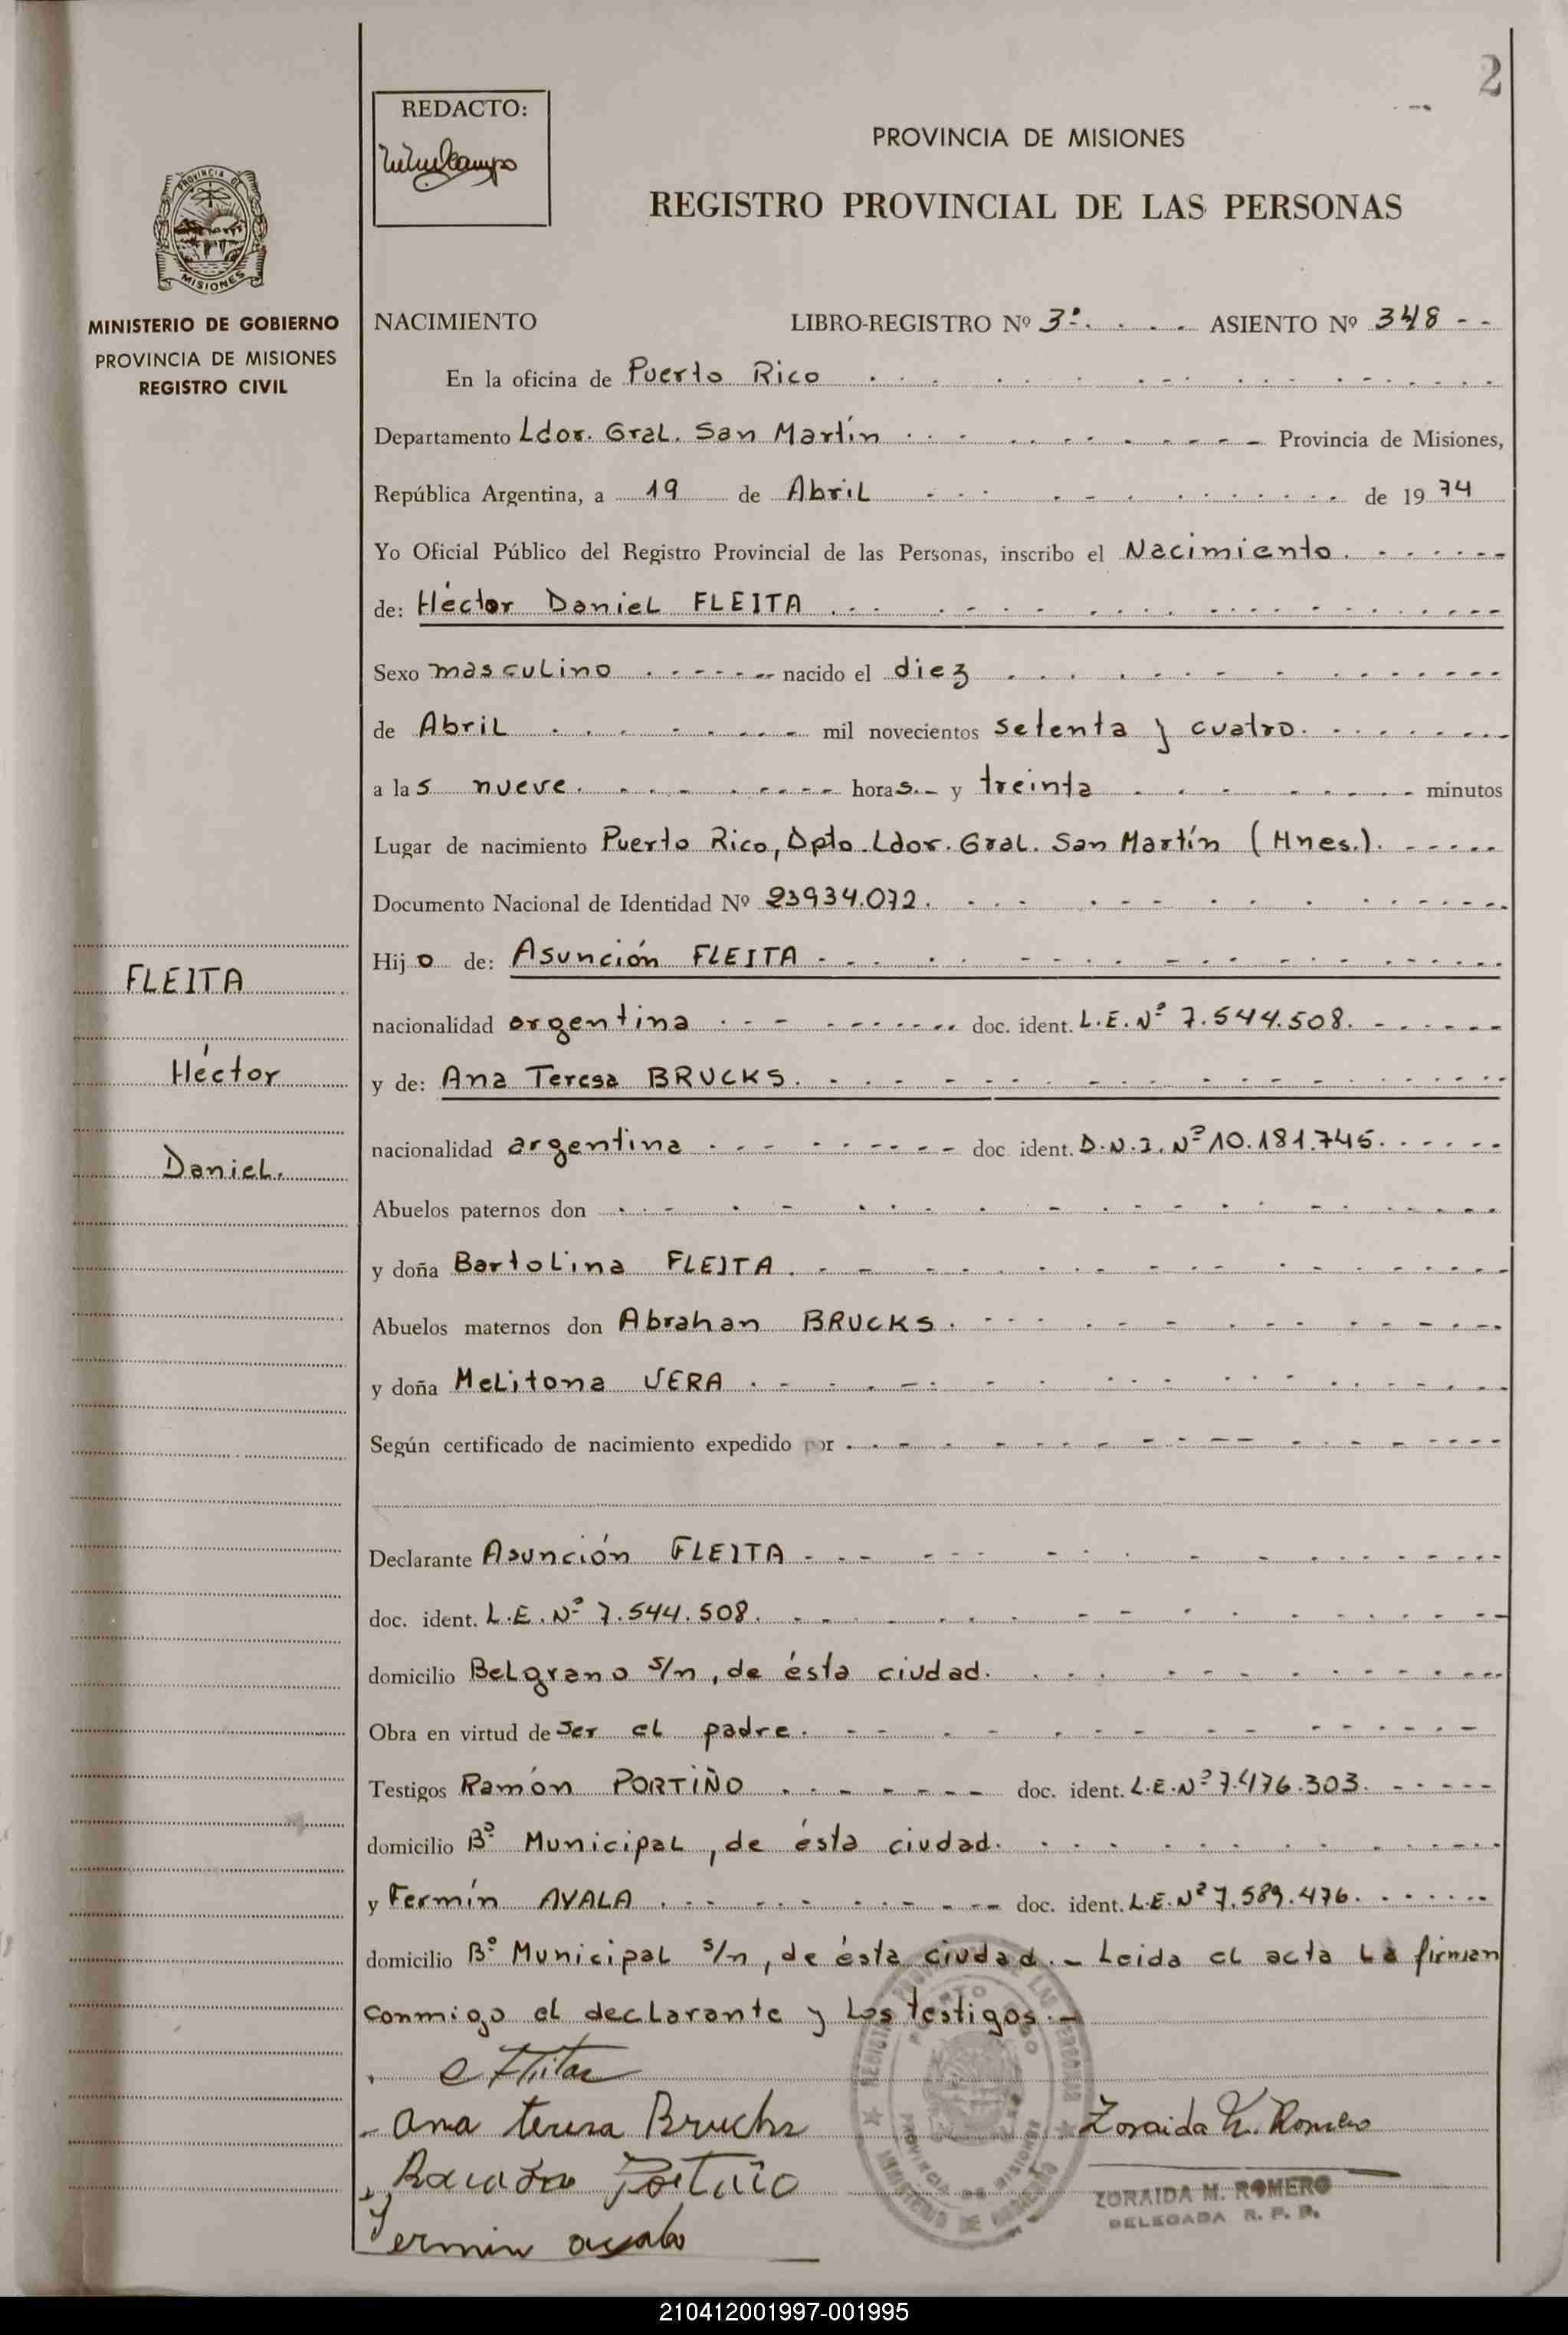 2
REDACTO:
PROVINCIA DE MISIONES
REGISTRO PROVINCIAL DE LAS PERSONAS
PROVINCIA DE
MISIONES
MINISTERIO DE GOBIERNO
PROVINCIA DE MISIONES
REGISTRO CIVIL
NACIMIENTO LIBRO-REGISTRO Nº 3º. ASIENTO Nº 348 - -
En la oficina de Puerto Rico
Departamento Ldor. Gral. San Martín Provincia de Misiones,
República Argentina, a 19 de Abril de 19 74
Yo Oficial Público del Registro Provincial de las Personas, inscribo el Nacimiento.
de: Héctor Daniel FLEITA
Sexo masculino nacido el diez
de Abril mil novecientos setenta y cuatro.
a las nueve. horas.- y treinta minutos
Lugar de nacimiento Puerto Rico, Dpto. Ldor. Gral. San Martín (Mnes.).
Documento Nacional de Identidad Nº 23934.072.
Hijo de: Asunción FLEITA
nacionalidad argentina doc. ident. L.E. Nº 7.544.508.
y de: Ana Teresa BRUCKS.
nacionalidad argentina doc. ident. D.N.I. Nº 10.181.745.
Abuelos paternos don
y doña Bartolina FLEITA.
Abuelos maternos don Abrahan BRUCKS.
y doña Melitona VERA
Según certificado de nacimiento expedido por
Declarante Asunción FLEITA
doc. ident. L.E. Nº 7.544.508.
domicilio Belgrano s/n, de ésta ciudad.
Obra en virtud de ser el padre.
Testigos Ramón PORTIÑO doc. ident. L.E. Nº 7.476.303.
domicilio Bº Municipal, de ésta ciudad.
y Fermín AYALA doc. ident. L.E. Nº 7.589.476.
domicilio Bº Municipal s/n, de ésta ciudad.- Leida el acta la firman
conmigo el declarante y los testigos.-
FLEITA
Héctor
Daniel.
Ana teresa Brucks
Fermin ayala
Zoraida M. Romero
ZORAIDA M. ROMERO
DELEGADA R. P. P.
PROVINCIA DE MISIONES
MINISTERIO DE GOBIERNO
210412001997-001995